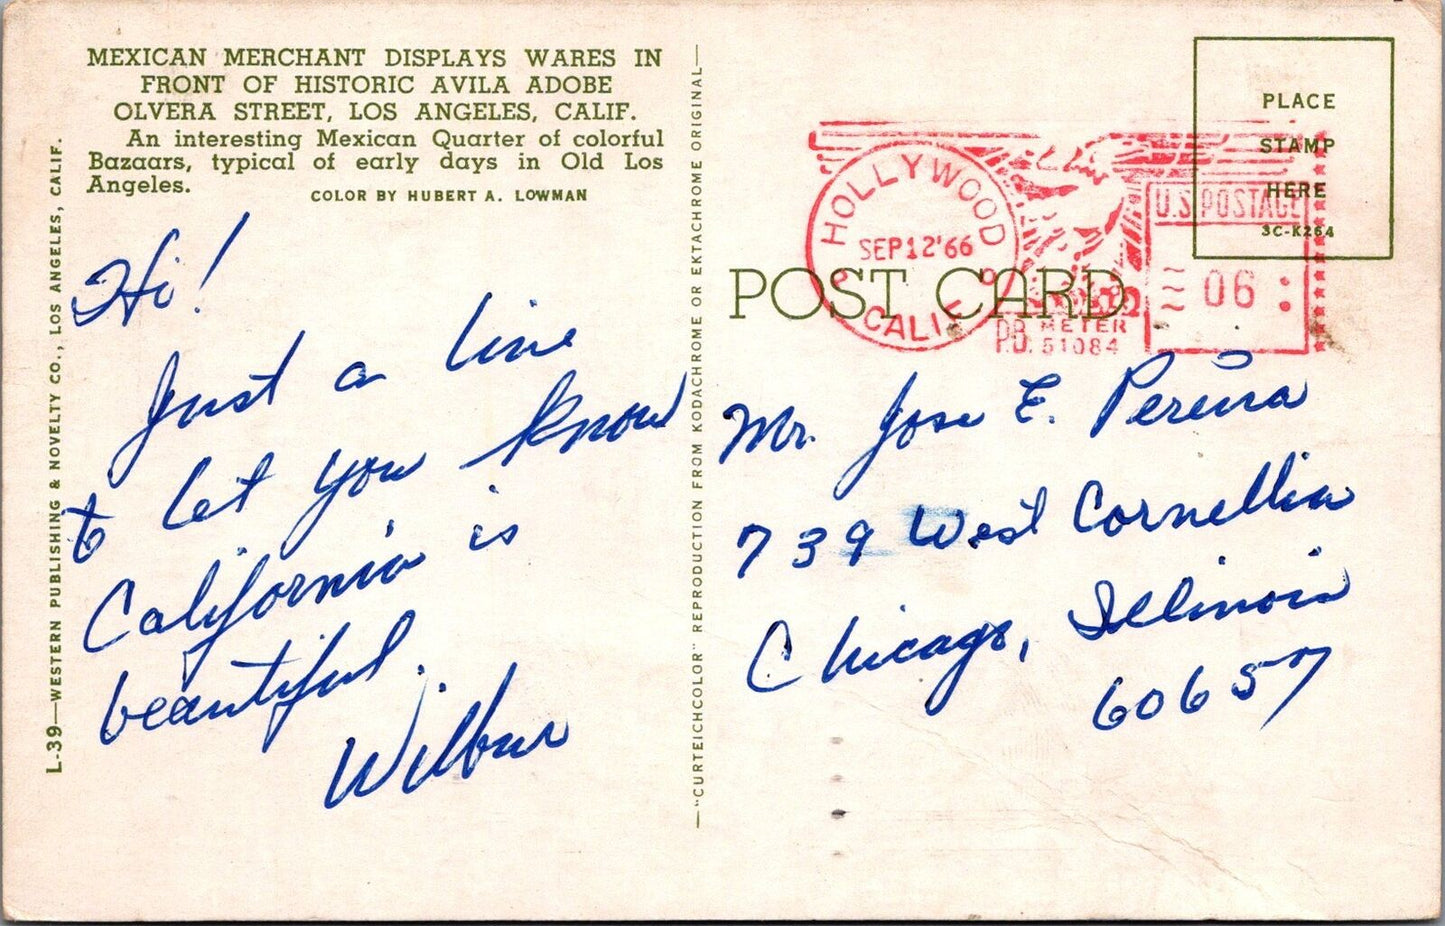 MEXICAN MERCHANT DISPLAYS WARES IN
FRONT OF HISTORIC AVILA ADOBE
OLVERA STREET, LOS ANGELES, CALIF.
An interesting Mexican Quarter of colorful
Bazaars, typical of early days in Old Los
Angeles.
COLOR BY HUBERT A. LOWMAN
L-39—WESTERN PUBLISHING & NOVELTY CO., LOS ANGELES, CALIF.
Hi!
Just a line
to let you know
California is
beautiful.
Wilbur
—"CURTEICHCOLOR" REPRODUCTION FROM KODACHROME OR EKTACHROME ORIGINAL—
PLACE
STAMP
HERE
3C-K264
HOLLYWOOD
SEP 12 '66
CALIF
U.S. POSTAGE
06
P.B. METER
51084
POST CARD
Mr. Jose E. Pereira
739 West Cornellia
Chicago, Illinois
60657